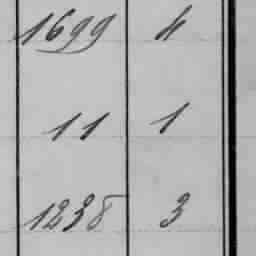 1699 4
11 1
1238 3